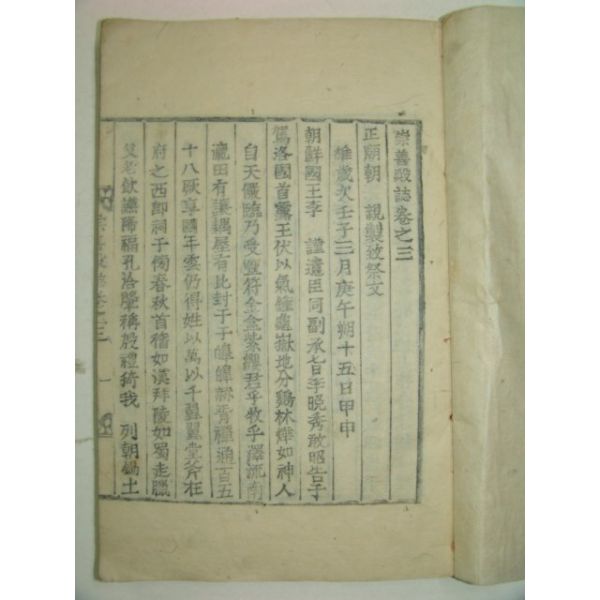 崇善殿誌卷之三
正廟朝 親製致祭文
維歲次壬子三月庚午朔十五日甲申
朝鮮國王李 謹遣臣同副承旨李晩秀敢昭告于
駕洛國首露王伏以氣鍾龜嶽地分鷄林燁如神人
自天儼臨乃受靈符金盒紫纓君乎牧乎澤流南
瀛田有讓耦屋有比封于于皥皥赫胥禮通百五
十八厥享國年雲仍得姓以萬以千翼翼堂斧在
府之西卽祠于傍春秋首稽如漢拜陵如蜀走臘
父老飮讌降福孔洽肇稱殷禮猗我 列朝錫土
崇善殿誌卷之三 一